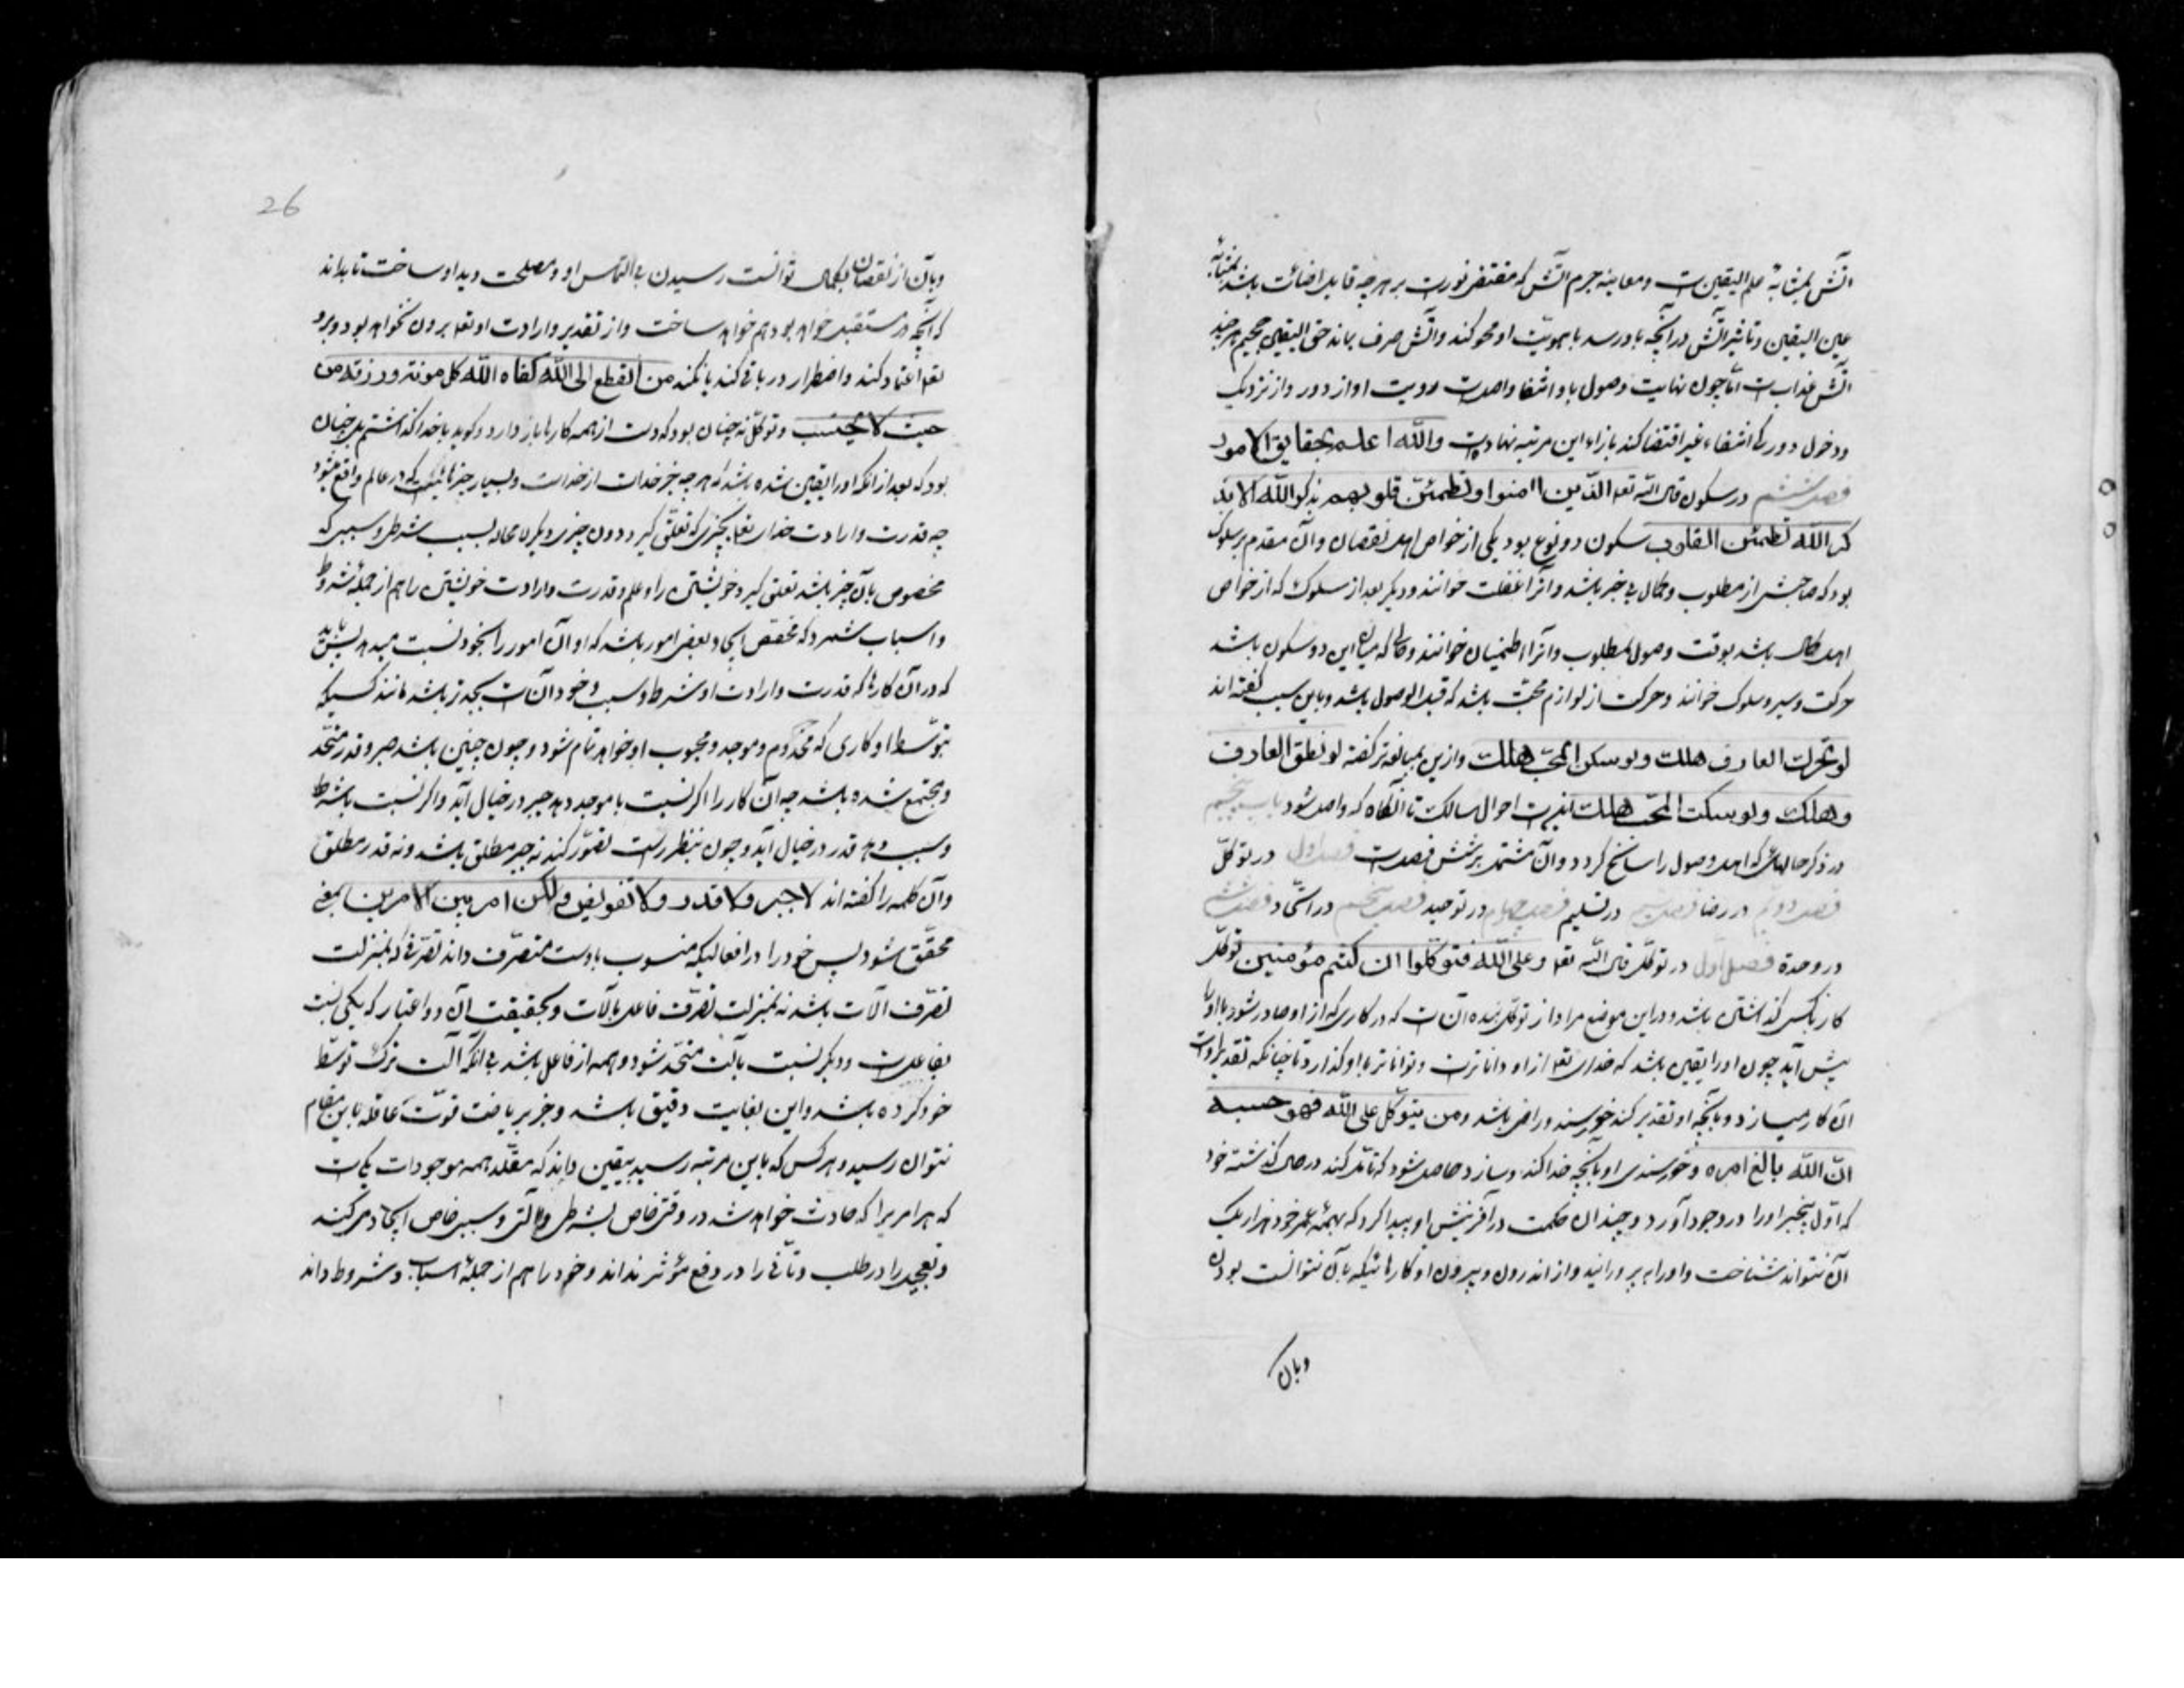 آتش بمثابهٔ علم الیقین است ومعاینه جرم آتش که مقتضی نورست بر هرچه قابل اضائت باشد بمثابهٔ
عین الیقین وتاثیر آتش در آنچه باو رسد تا هویّت او محو کند وآتش صرف بماند حق الیقین جحیم هرچند
آتش عذابست امّا چون نهایت وصول باو انتفا واصلست رویت او از دور واز نزدیک
ودخول درو که انتفاء غیر اقتضا کند بازاء این مرتبه نهادست والله اعلم بحقایق الامور
فصل ششم در سکون قال الله تعه الذین اامنوا وتطمئنّ قلوبهم بذکر الله الا بذ
کر الله تطمئن القلوب سکون دو نوع بود یکی از خواص اهل نقصان وآن مقدم بر سلوک
بود که صاحبش از مطلوب وکمال بی خبر باشد وآنرا غفلت خوانند ودیگر بعد از سلوک که از خواص
اهل کمال باشد بوقت وصول بمطلوب وآنرا اطمینان خوانند وحالی که میان این دو سکون باشد
حرکت وسیر وسلوک خوانند وحرکت از لوازم محبّت باشد که قبل الوصول باشد وباین سبب گفته اند
لو تحرک العارف هلک ولو سکن المحب هلک وازین بمبالغه تر گفته لو نطق العارف
وهلک ولو سکت المحب هلک اینست احوال سالک تا آنگاه که واصل شود باب پنجم
در ذکر حالهائی که اهل وصول را سانح گردد وآن مشتمل بر شش فصلست فصل اول در توکّل
فصل دویم در رضا فصل سیم در تسلیم فصل چهارم در توحید فصل پنجم در اتّحاد فصل ششم
در وحدة فصل اول در توکل قال الله تعه وعلی الله فتوکلوا ان کنتم مؤمنین توکل
کار با کسی گذاشتن باشد ودر این موضع مراد از توکل بنده آن است که در کاری که از او صادر شود یا او را
پیش آید چون او را یقین باشد که خدای تعه از او داناترست وتواناتر با او گذارد تا چنانکه تقدیر اوست
آن کار میسازد وبآنچه او تقدیر کند خورسند وراضی باشد ومن یتوکل علی الله فهو حسبه
انّ الله بالغ امره وخورسندی او بآنچه خدا کند وسازد حاصل شود که تامل کند در حال گذشته خود
که اوّل بیخبر او را در وجود آورد وچندان حکمت در آفرینش او پیدا کرد که بهمهٔ عمر خود هزار یک
آن نتواند شناخت واو را به پرورانید واز اندرون وبیرون او کارهائیکه بآن نتوانست بودن
وبآن
26
وبآن از نقصان بکمال توانست رسیدن بی التماس او ومصلحت دید او ساخت تا بداند
که آنچه در مستقبل خواهد بود هم خواهد ساخت واز تقدیر وارادت او تعه برون نخواهد بود وبرو
تعه اعتماد کند واضطرار در باقی کند یا نکند من انقطع الی الله کفاه الله کل مونته ورزقه من
حیث لا یحتسب وتوکّل نه چنان بود که دست از همه کارها باز دارد وگوید با خدا گذاشتم بل چنان
بود که بعد از آنکه او را یقین شده باشد که هرچه جز خداست از خداست وبسیار چیزهاست که در عالم واقع میشود
چه قدرت وارادت خدای تعه بچیزی که تعلّق گیرد دون چیزی دیگر لا محاله بسبب شرطی وسببی که
مخصوص بآن چیز باشد تعلق گیرد خویشتن را وعلم وقدرت وارادت خویشتن را هم از جملهٔ شروط
واسباب شمرد که مخصص ایجاد بعضی امور باشد که او آن امور را بخود نسبت میدهد پس باید
که در آن کارها که قدرت وارادت او شرط وسبب وجود آنست بجدتر باشد مانند کسیکه
بتوسّط او کاری که مخدوم وموجد ومحبوب او خواهد تمام شود وچون چنین باشد جبر وقدر متّحد
ومجتمع شده باشد چه آن کار را اگر نسبت با موجد دهد جبر در خیال آید واگر نسبت با شرط
وسبب دهد قدر در خیال آید وچون بنظر راست تصوّر کند نه جبر مطلق باشد ونه قدر مطلق
وآن کلمه را گفته اند لا جبر ولا قدر ولا تفویض ولکن امر بین الامرین بمعنی
محقّق شود پس خود را در افعالیکه منسوب باوست متصرّف داند تصرّفی که بمنزلت
تصرّف آلات باشد نه بمنزلت تصرّف فاعل بآلات وبحقیقت آن دو اعتبار که یکی نسبت
بفاعلست ودیگر نسبت بآلت متحّد شود وهمه از فاعل باشد بی آنکه آلت ترک توسّط
خود کرده باشد واین بغایت دقیق باشد وجز بریاضت قوّت عاقله باین مقام
نتوان رسید وهر کس که باین مرتبه رسید بیقین داند که مقدّر همه موجودات یکست
که هر امریرا که حادث خواهد شد در وقتی خاص بشرطی وآلتی وسببی خاص ایجاد می کند
وتعجیل را در طلب وتأنّی را در دفع مؤثر نداند وخود را هم از جملهٔ اسباب وشروط داند